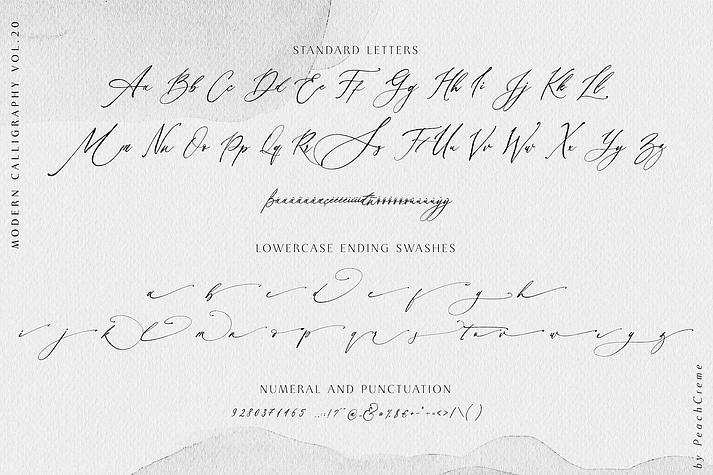 MODERN CALLIGRAPHY VOL.20
STANDARD LETTERS
Aa Bb Cc Dd Ee Ff Gg Hh Ii Jj Kk Ll
Mm Nn Oo Pp Qq Rr Ss Tt Uu Vv Ww Xx Yy Zz
LOWERCASE ENDING SWASHES
a b c d e f g h
i j k l m n o p q r s t u v w x y z
NUMERAL AND PUNCTUATION
9280371465
by PeachCreme